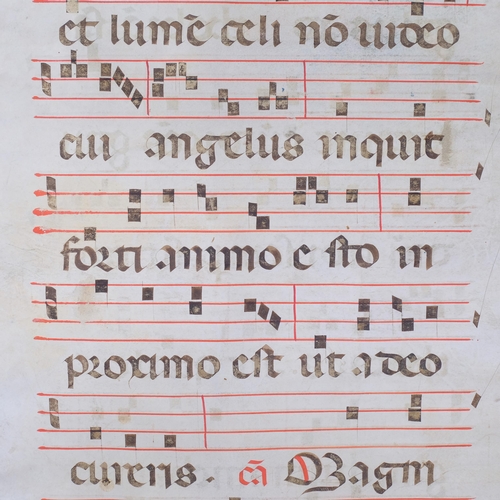 et lumē celi nō uideo
cui angelus inquit
forti animo e sto in
proximo est ut a deo
cureris. cā Magni